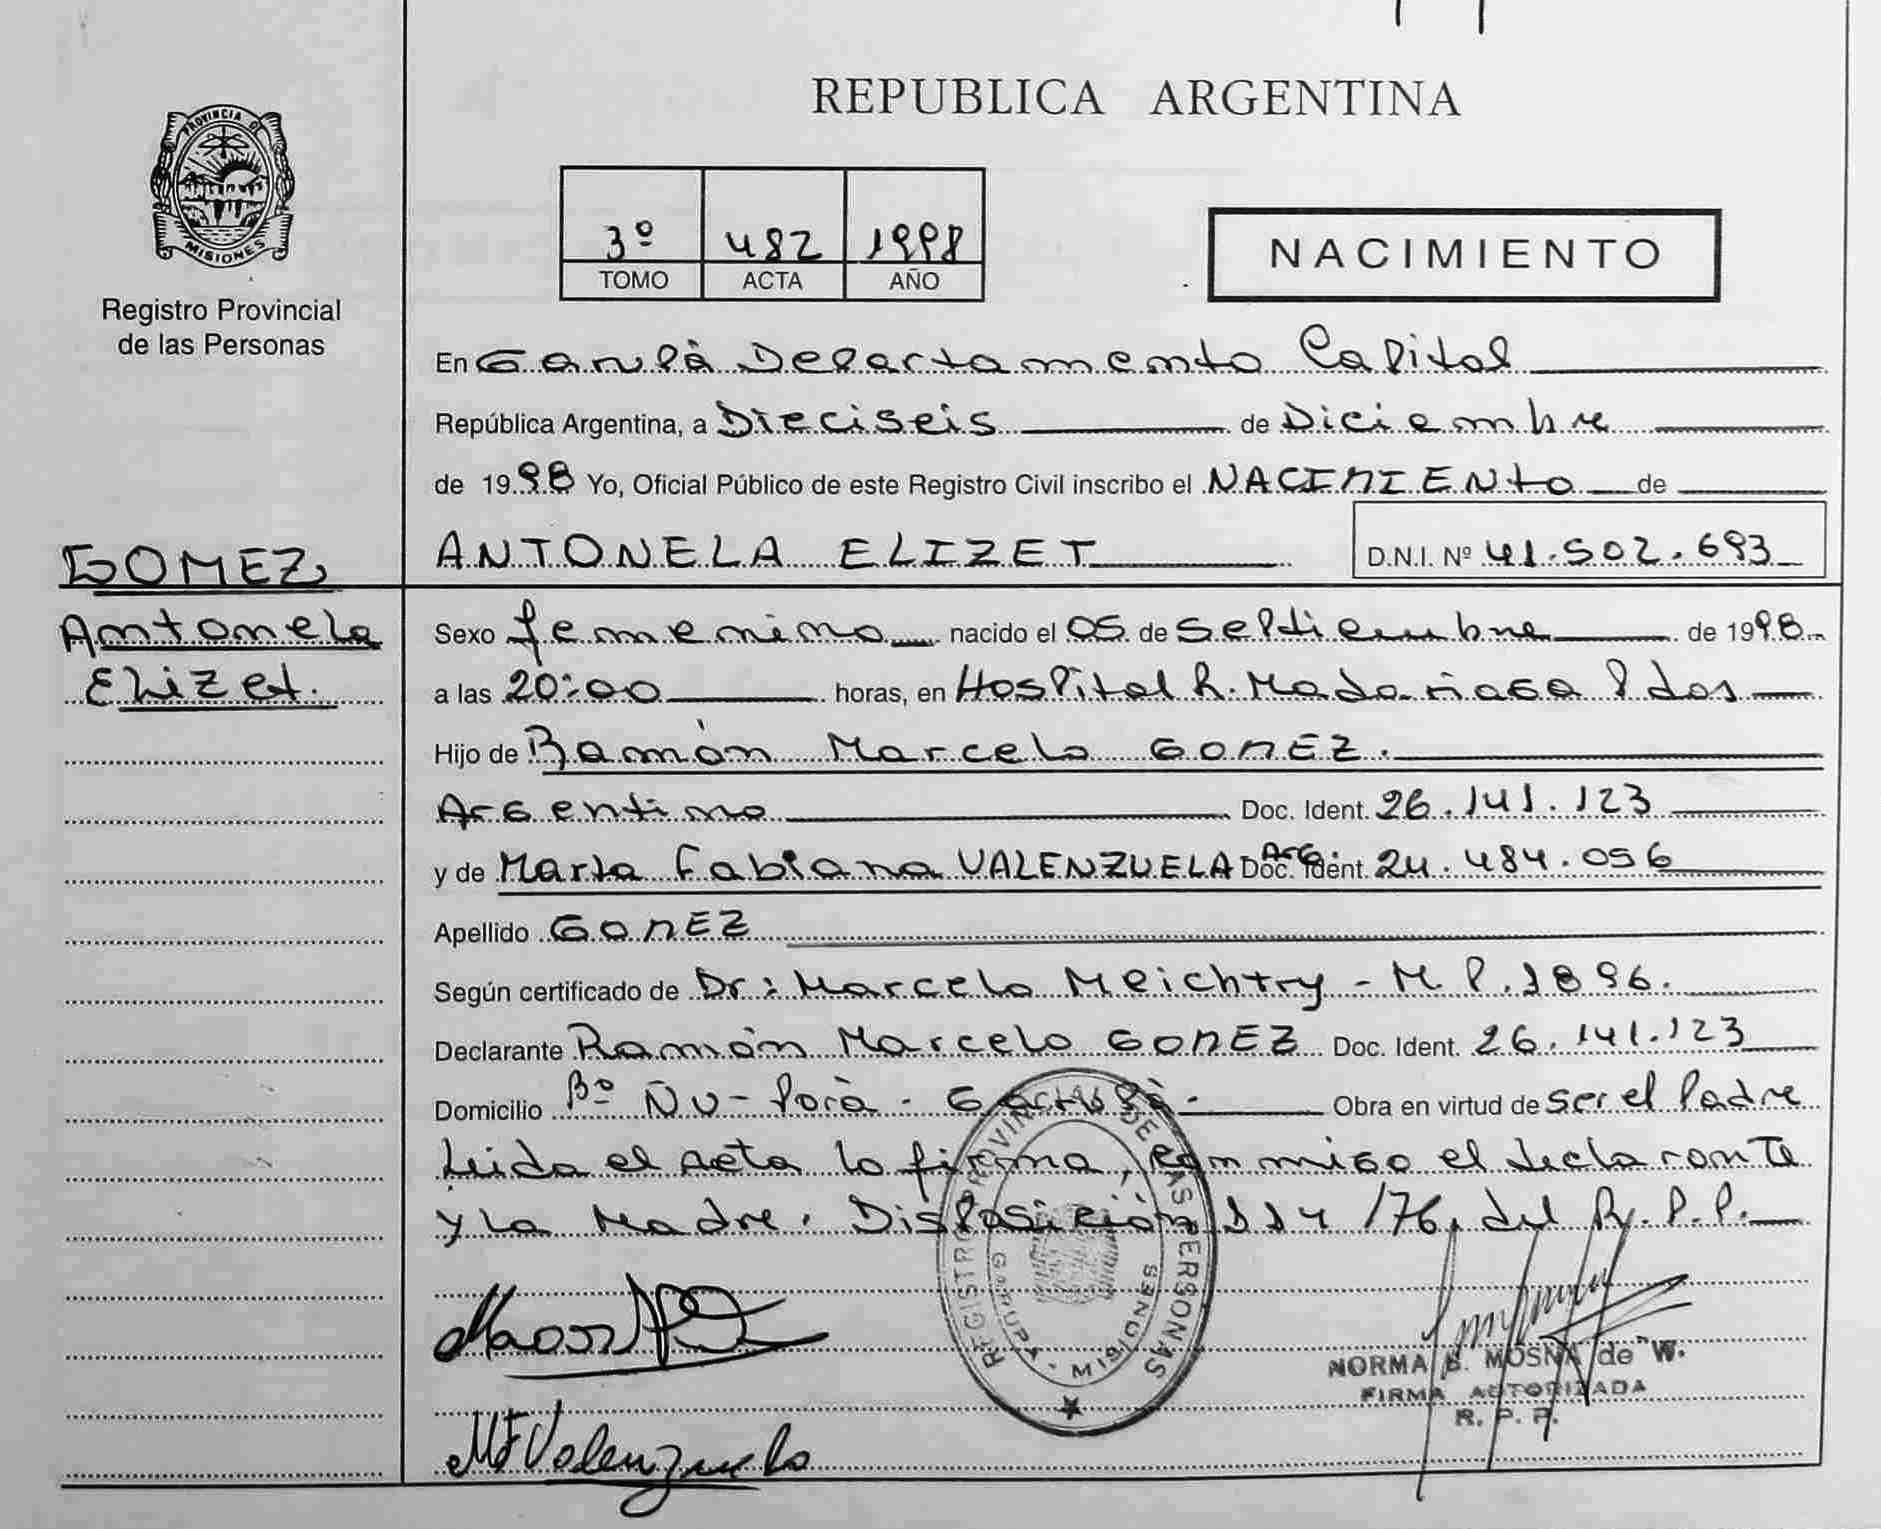 REPUBLICA ARGENTINA
PROVINCIA DE
MISIONES
Registro Provincial
de las Personas
3º 482 1998
TOMO ACTA AÑO
NACIMIENTO
En Garupà Departamento Capital
República Argentina, a Dieciseis de Diciembre
de 1998 Yo, Oficial Público de este Registro Civil inscribo el NACIMIENto de
ANTONELA ELIZET D.N.I. Nº 41.502.693
GOMEZ
Antonela
Elizet.
Sexo femenino nacido el 05 de Septiembre de 1998
a las 20:00 horas, en Hospital R. Madariaga Pdas
Hijo de Ramón Marcelo GOMEZ.
Argentino Doc. Ident. 26.141.123
y de María Fabiana VALENZUELA Arg. Doc. Ident. 24.484.056
Apellido GOMEZ
Según certificado de Dr: Marcelo Meichtry - M.P. 1896.
Declarante Ramón Marcelo GOMEZ Doc. Ident. 26.141.123
Domicilio Bº Ñu-Porà - Garupà - Obra en virtud de ser el Padre
Leida el acta la firma, conmigo el declarante
y la Madre. Disposición 114/76, del R.P.P.
REGISTRO PROVINCIAL DE LAS PERSONAS
GARUPA - MISIONES
MF Valenzuela
NORMA B. MOSNA de W.
FIRMA AUTORIZADA
R. P. P.